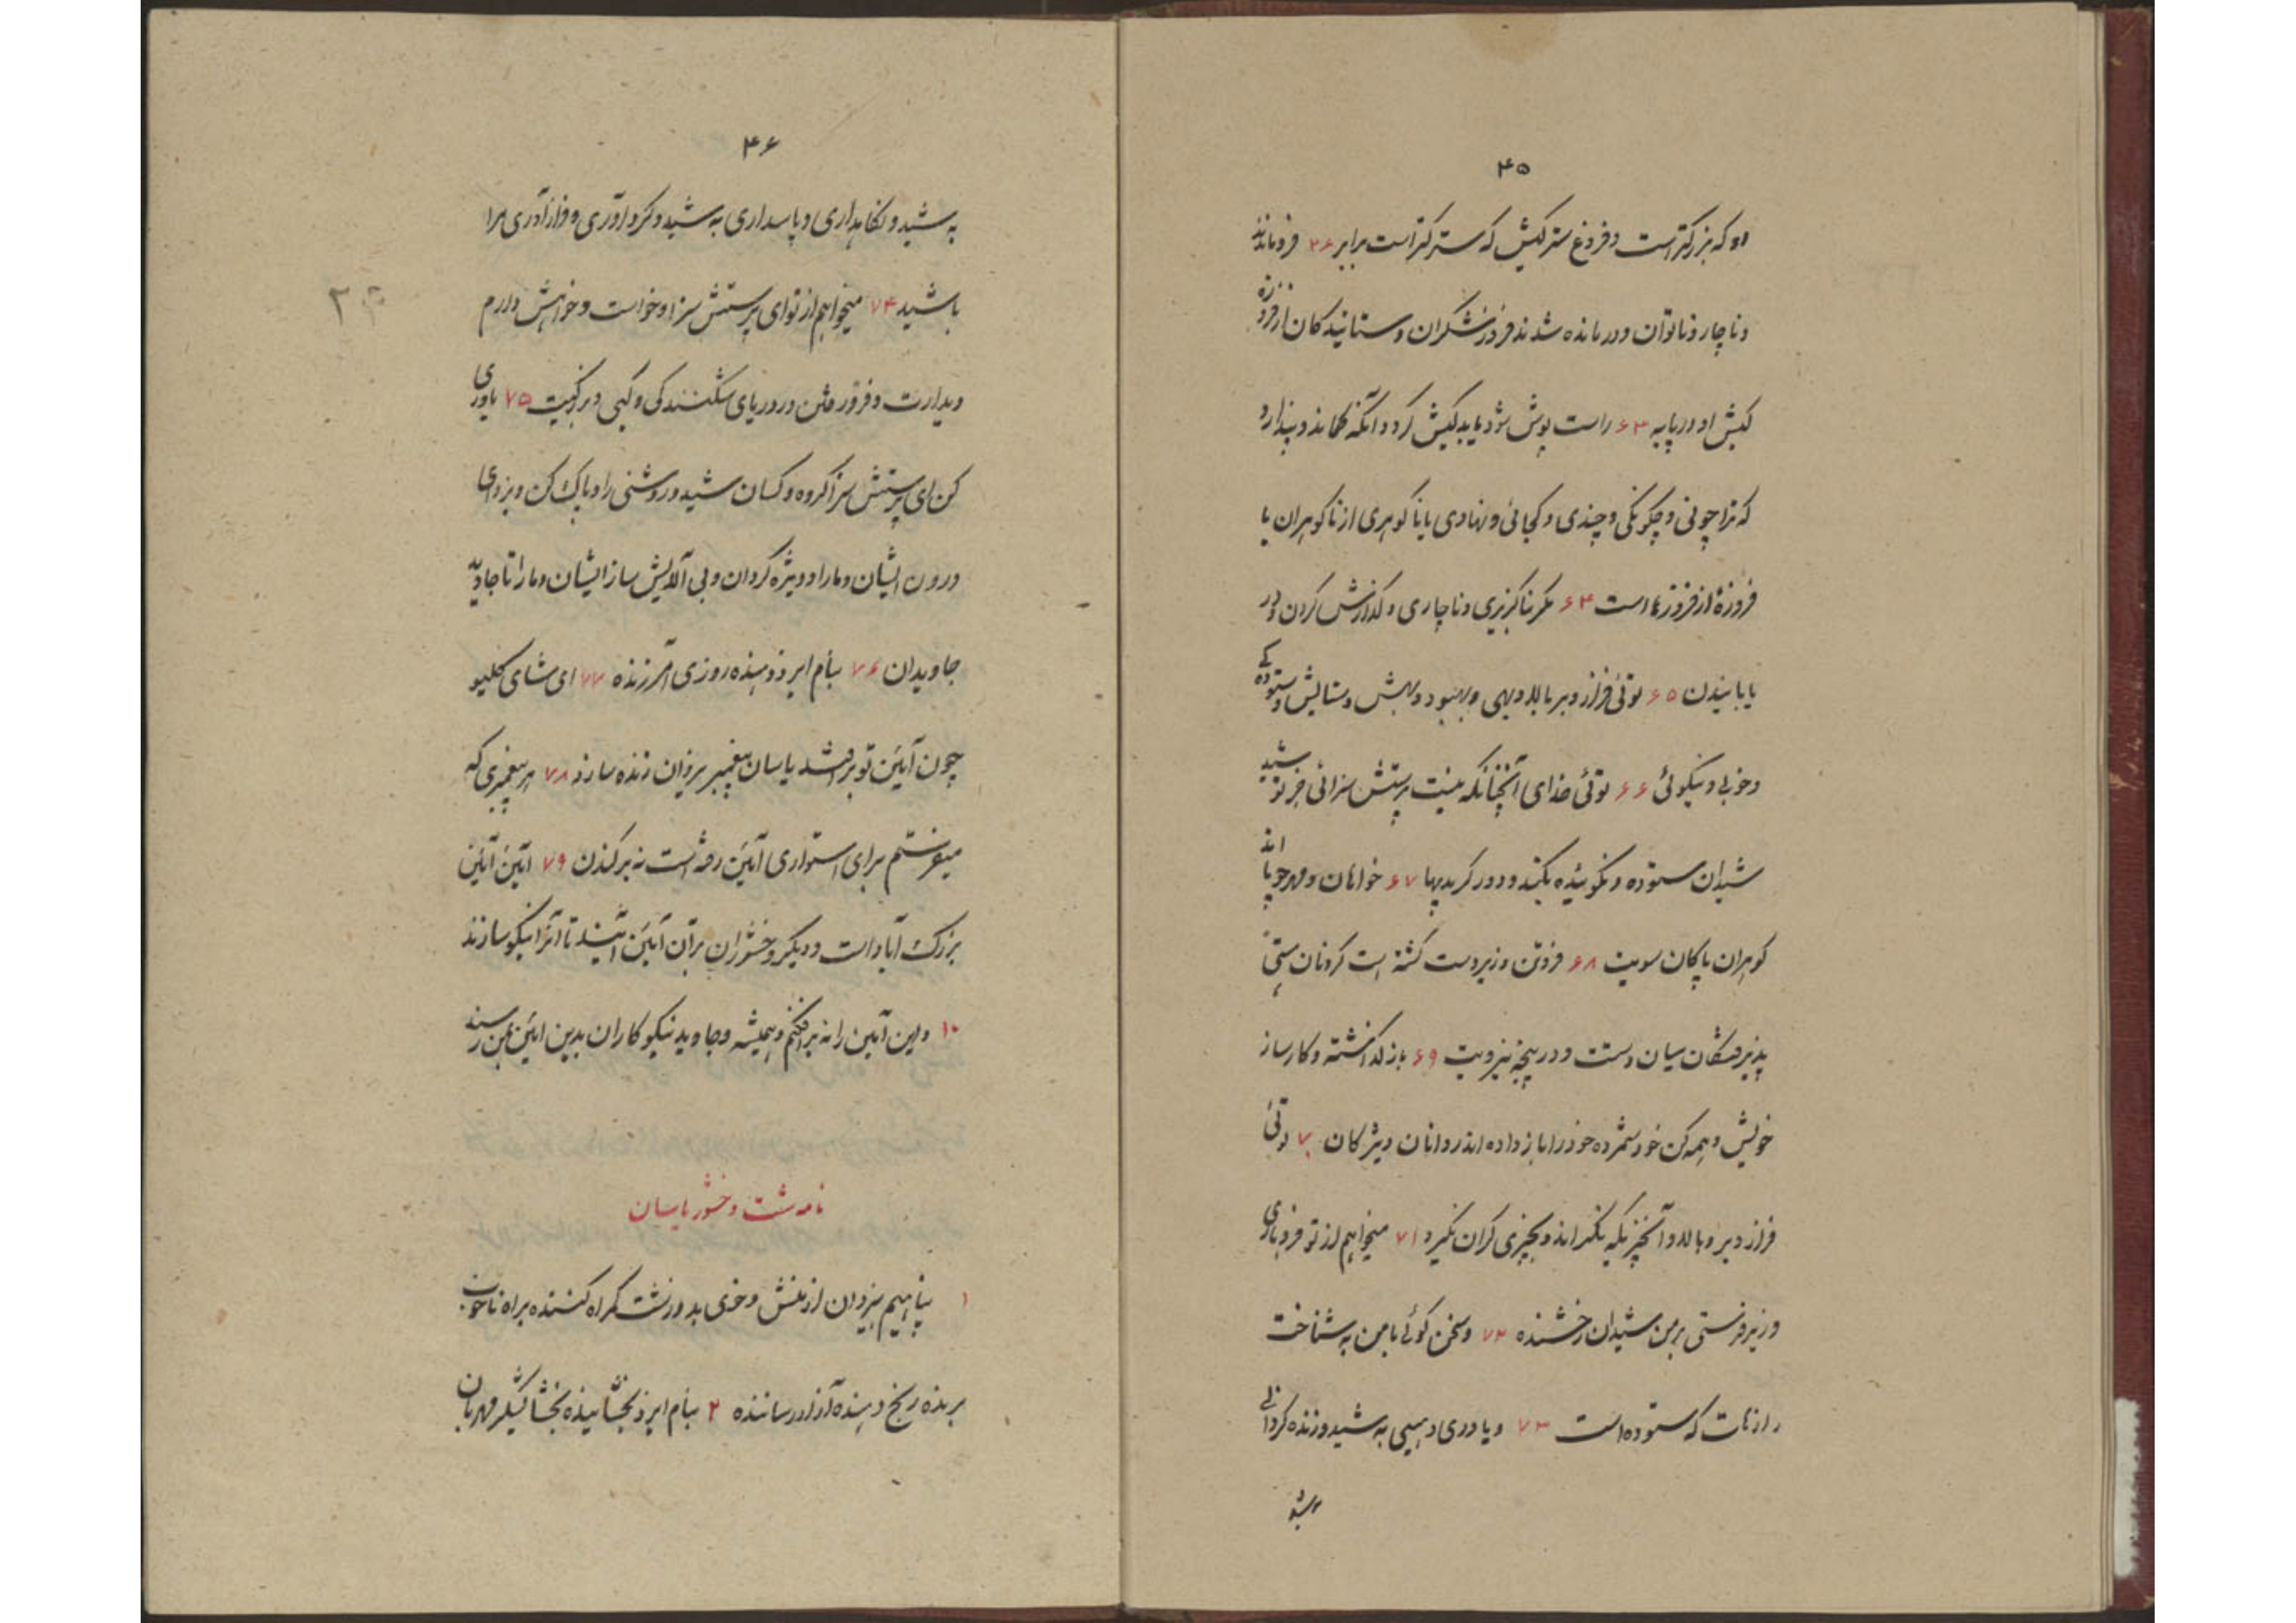 ۴۵
او که بزرکتر است و فروغ سترکیش که سترکتر است برابر ۶۲ فروماندند
و ناچار و ناتوان و درمانده شدند فروزشکران و ستانیدکان از فروزه
کیش او در پایه ۶۳ راست پوش شود یا بدکیش کردد آنکه کماند و پندارد
که ترا چونی و چکونکی و چندی و کجائی و نهادی یا ناکوهری از ناکوهران یا
فروزهٔ از فروزها است ۶۴ مکر ناکزیری و ناچاری و کذارش کردن و در
یابانیدن ۶۵ توئی فراز و بر بالا و بهی و بهبود و بهش و ستایش و ستودکی
و خوبی و نیکوئی ۶۶ توئی خدای آنچنانکه نیست پرستش سزائی جز تو شید
شیدان ستوده و نکوئیده یکتند و دور کریبها ۶۷ خواهان و مهرجویا اند
کوهران پاکان سویت ۶۸ فروتن و زیردست کشته است کردنان هستی
پذیرفتکان بیان دست و در پنجه نیرویت ۶۹ باز کذاشته و کارساز
خویش و همه کن خود شمرده خود را باز داده اند روانان ویژکان ۷۰ توئی
فراز و بر و بالا و آنچیزیکه بکنراند و بچیزی کران نکیرد ۷۱ میخواهم از تو فروباری
و زیر فرستی بر من شیدان رخشنده ۷۲ و سخن کوئی با من به شناخت
رازهات که ستوده است ۷۳ و یاوری دهیمی به شید و زنده کردانی
به شید
۴۶
به شید و نکاهداری و پاسداری به شید و کردآوری و فراز آوری مرا
باشید ۷۴ میخواهم از تو ای پرستش سزا و خواست و خواهش دارم
دیدارت و فرورفتن در دریای شکنندکی و کیی و بزرکیت ۷۵ یاوری
کن ای پرستش سزا کروه و کسان شید و روشنی را و پاک کن و بزدای
درون ایشان و مارا و ویژه کردان و بی آلایش ساز ایشان و مارا تا جاوید
جاویدان ۷۶ بنام ایزد دهنده روزی آمرزنده ۷۷ ای شای کلیو
چون آیین تو برافتد یاسان پیغمبر یزدان زنده سازد ۷۸ هر پیغمبری که
میفرستم برای استواری آیین رفته است نه برکندن ۷۹ آیین آیین
بزرک آباد است و دیکر وخشوران بر آن آیین آیند تا آنرا نیکو سازند
۸۰ و این آیین را نه برافکنم و همیشه و جاوید نیکوکاران بدین آیین بمن رسند
نامه شت وخشور یاسان
۱ پناهیم بیزدان از منش و خوی بد و زشت کمراه کننده براه ناخوب
برنده رنج دهنده آزار رساننده ۲ بنام ایزد بخشاینده بخشایشکر مهربان